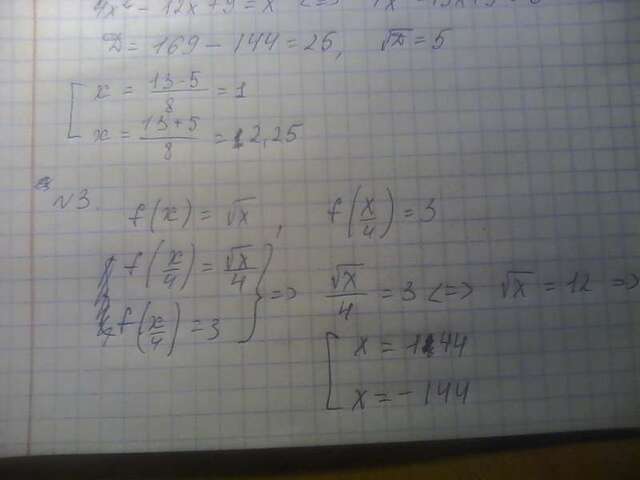 4x² - 12x + 9 = x <=>
D = 169 - 144 = 25, √D = 5
x = (13-5)/8 = 1
x = (13+5)/8 = 2,25
N3. f(x) = √x, f(x/4) = 3
f(x/4) = √x/4
f(x/4) = 3
=> √x/4 = 3 <=> √x = 12 =>
x = 144
x = -144